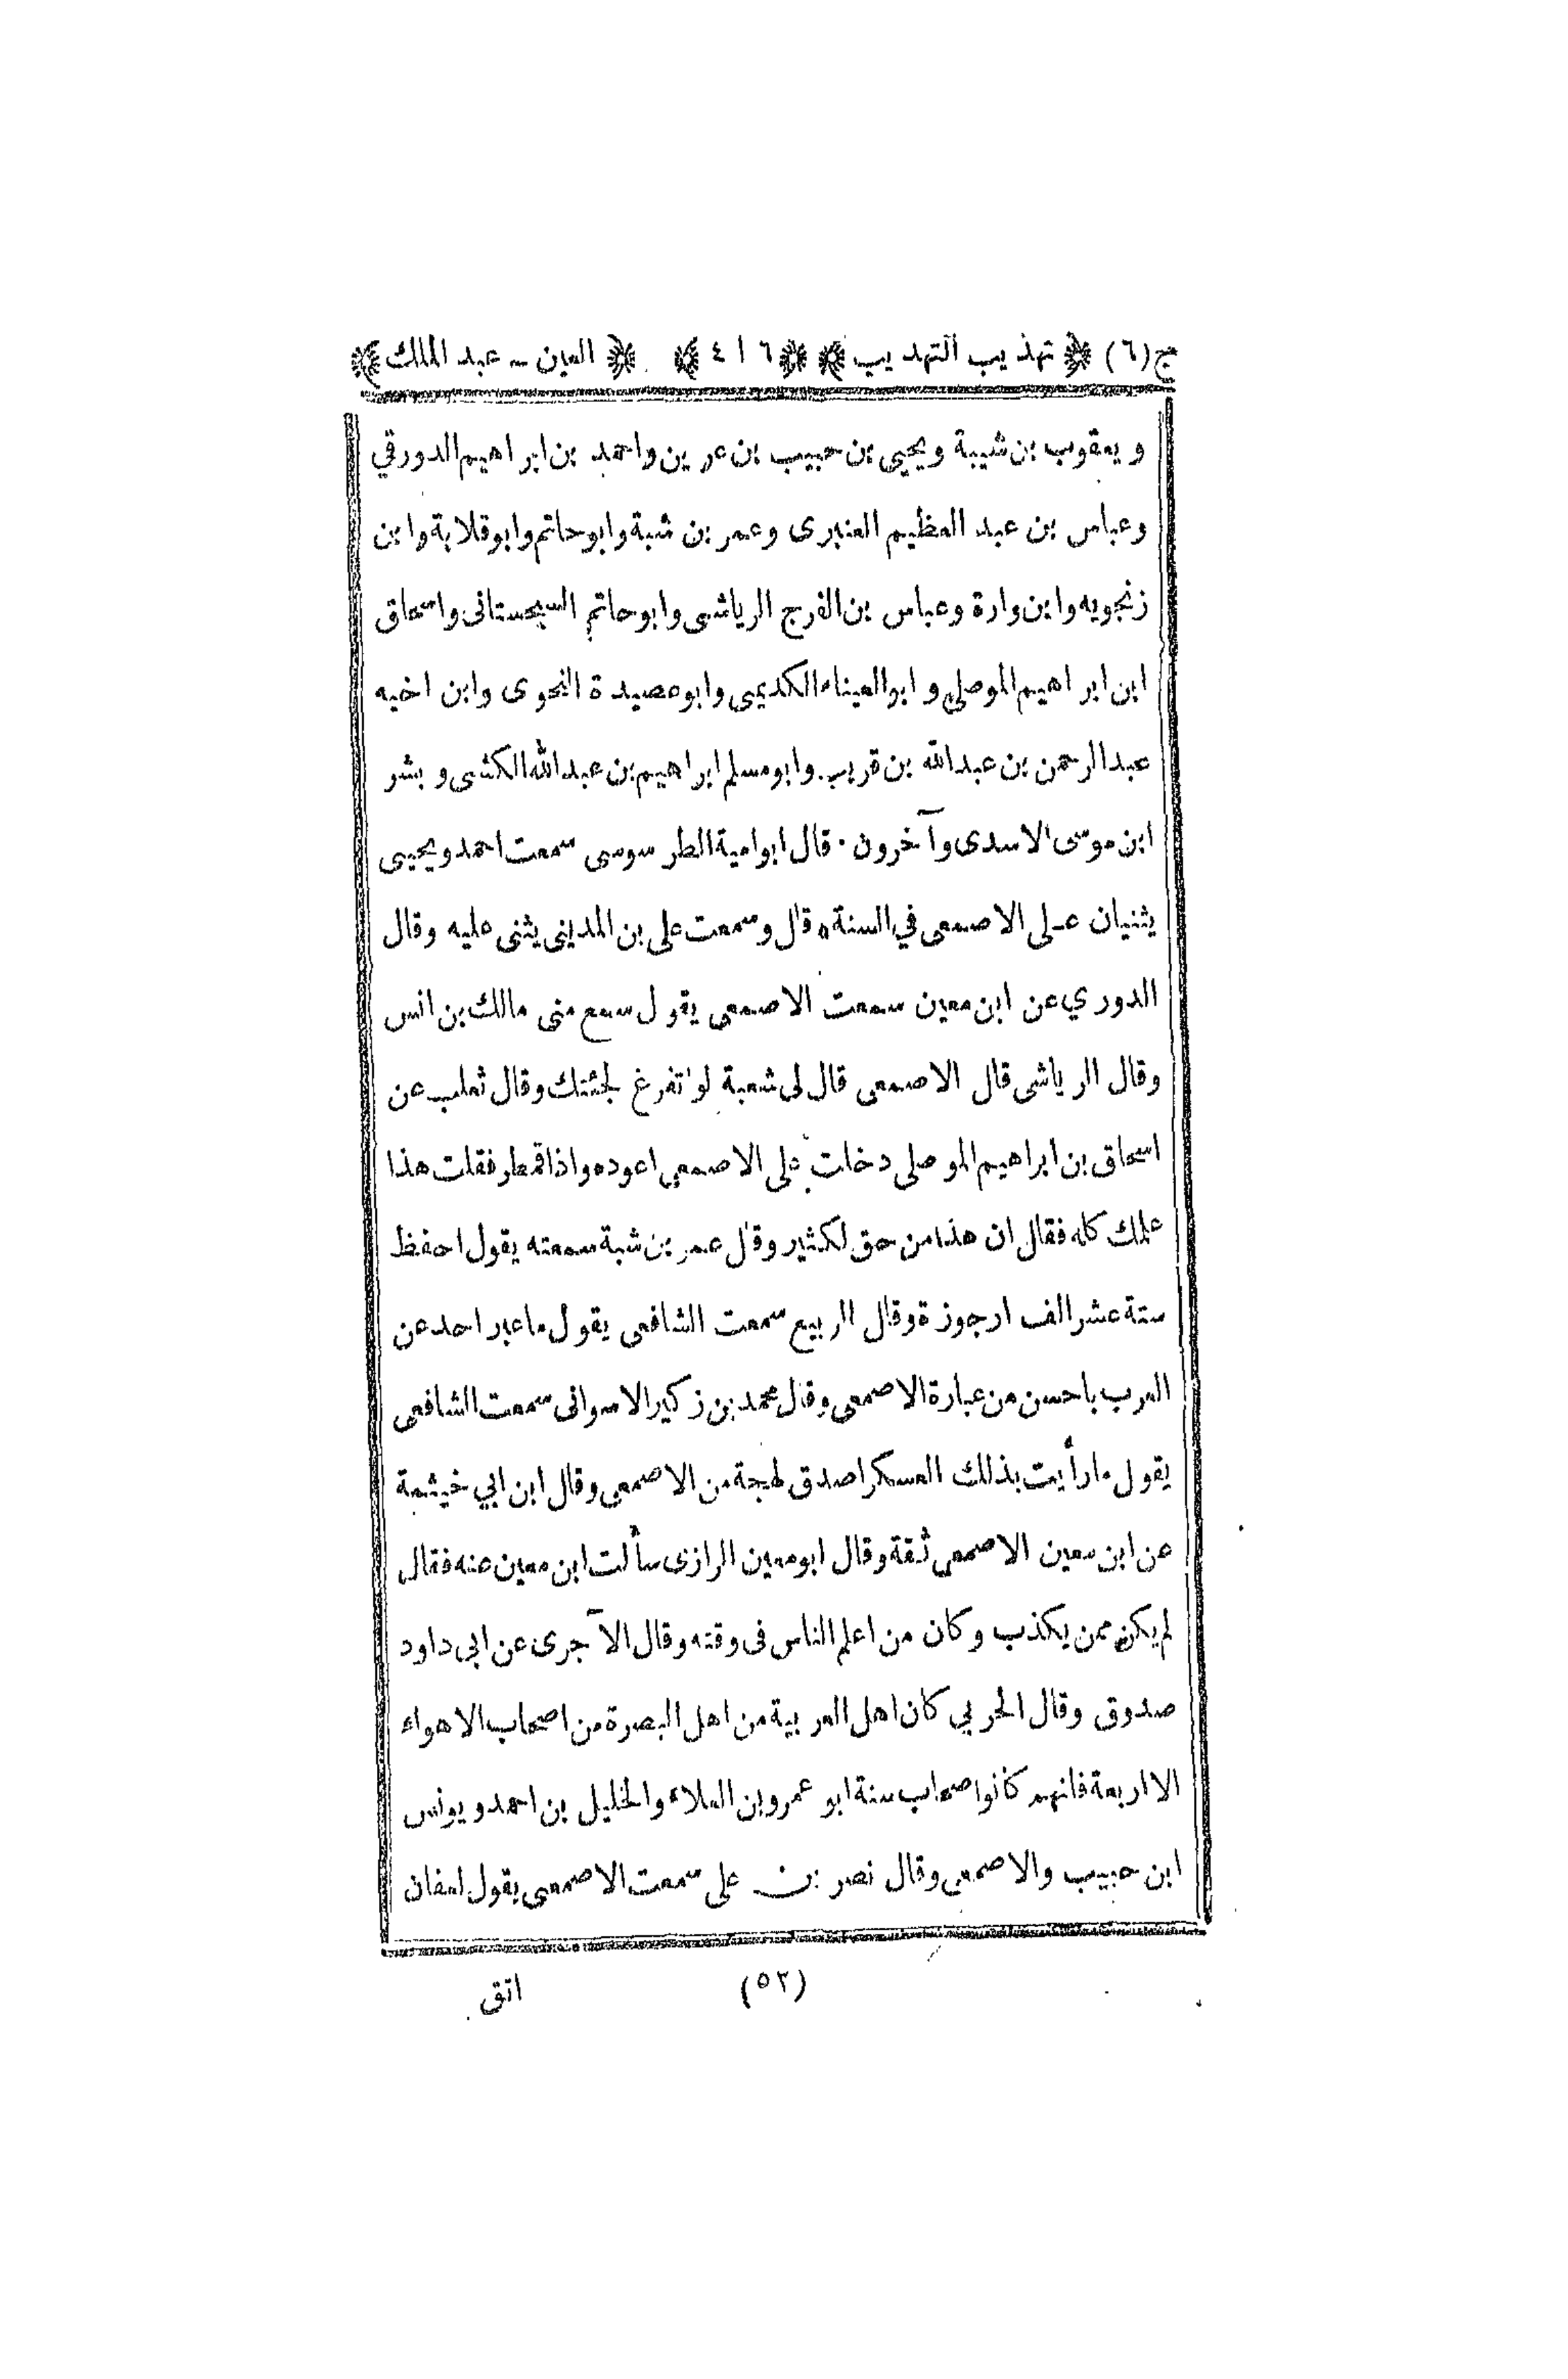 ج (٦) ﴿ تهذيب التهذيب ﴾ ﴿ ٤١٦ ﴾ ﴿ العين - عبد الملك ﴾
ويعقوب بن شيبة ويحيى بن حبيب بن عربي واحمد بن ابراهيم الدورقي
وعباس بن عبد العظيم العنبرى وعمر بن شبة وابو حاتم وابو قلابة وابن
زنجويه وابن وارة وعباس بن الفرج الرياشى وابو حاتم السجستانى واسحاق
ابن ابراهيم الموصلى وابو العيناء الكديمى وابو عصيدة النحوى وابن اخيه
عبد الرحمن بن عبد الله بن قريب. وابو مسلم ابراهيم بن عبد الله الكشى وبشر
ابن موسى الاسدى وآخرون . قال ابو امية الطرسوسى سمعت احمد ويحيى
يثنيان على الاصمعى في السنة ه قال وسمعت على بن المدينى يثنى عليه وقال
الدوري عن ابن معين سمعت الاصمعى يقول سمع منى مالك بن انس
وقال الرياشى قال الاصمعى قال لى شعبة لو اتفرغ لجئتك وقال ثعلب عن
اسحاق بن ابراهيم الموصلى دخلت على الاصمعى اعوده واذا قمطر فقلت هذا
علمك كله فقال ان هذا من حق لكثير وقال عمر بن شبة سمعته يقول احفظ
ستة عشر الف ارجوزة وقال الربيع سمعت الشافعى يقول ما عبر احد عن
العرب باحسن من عبارة الاصمعى وقال محمد بن زكير الاسوانى سمعت الشافعى
يقول ما رأيت بذلك العسكر اصدق لهجة من الاصمعى وقال ابن ابي خيثمة
عن ابن معين الاصمعى ثقة وقال ابو معين الرازى سألت ابن معين عنه فقال
لم يكن ممن يكذب وكان من اعلم الناس فى وقته وقال الآجرى عن ابى داود
صدوق وقال الحربي كان اهل العربية من اهل البصرة من اصحاب الاهواء
الا اربعة فانهم كانوا صحاب سنة ابو عمرو بن العلاء والخليل بن احمد ويونس
ابن حبيب والاصمعى وقال نصر بن على سمعت الاصمعى يقول لعفان
(٥٢)
اتق